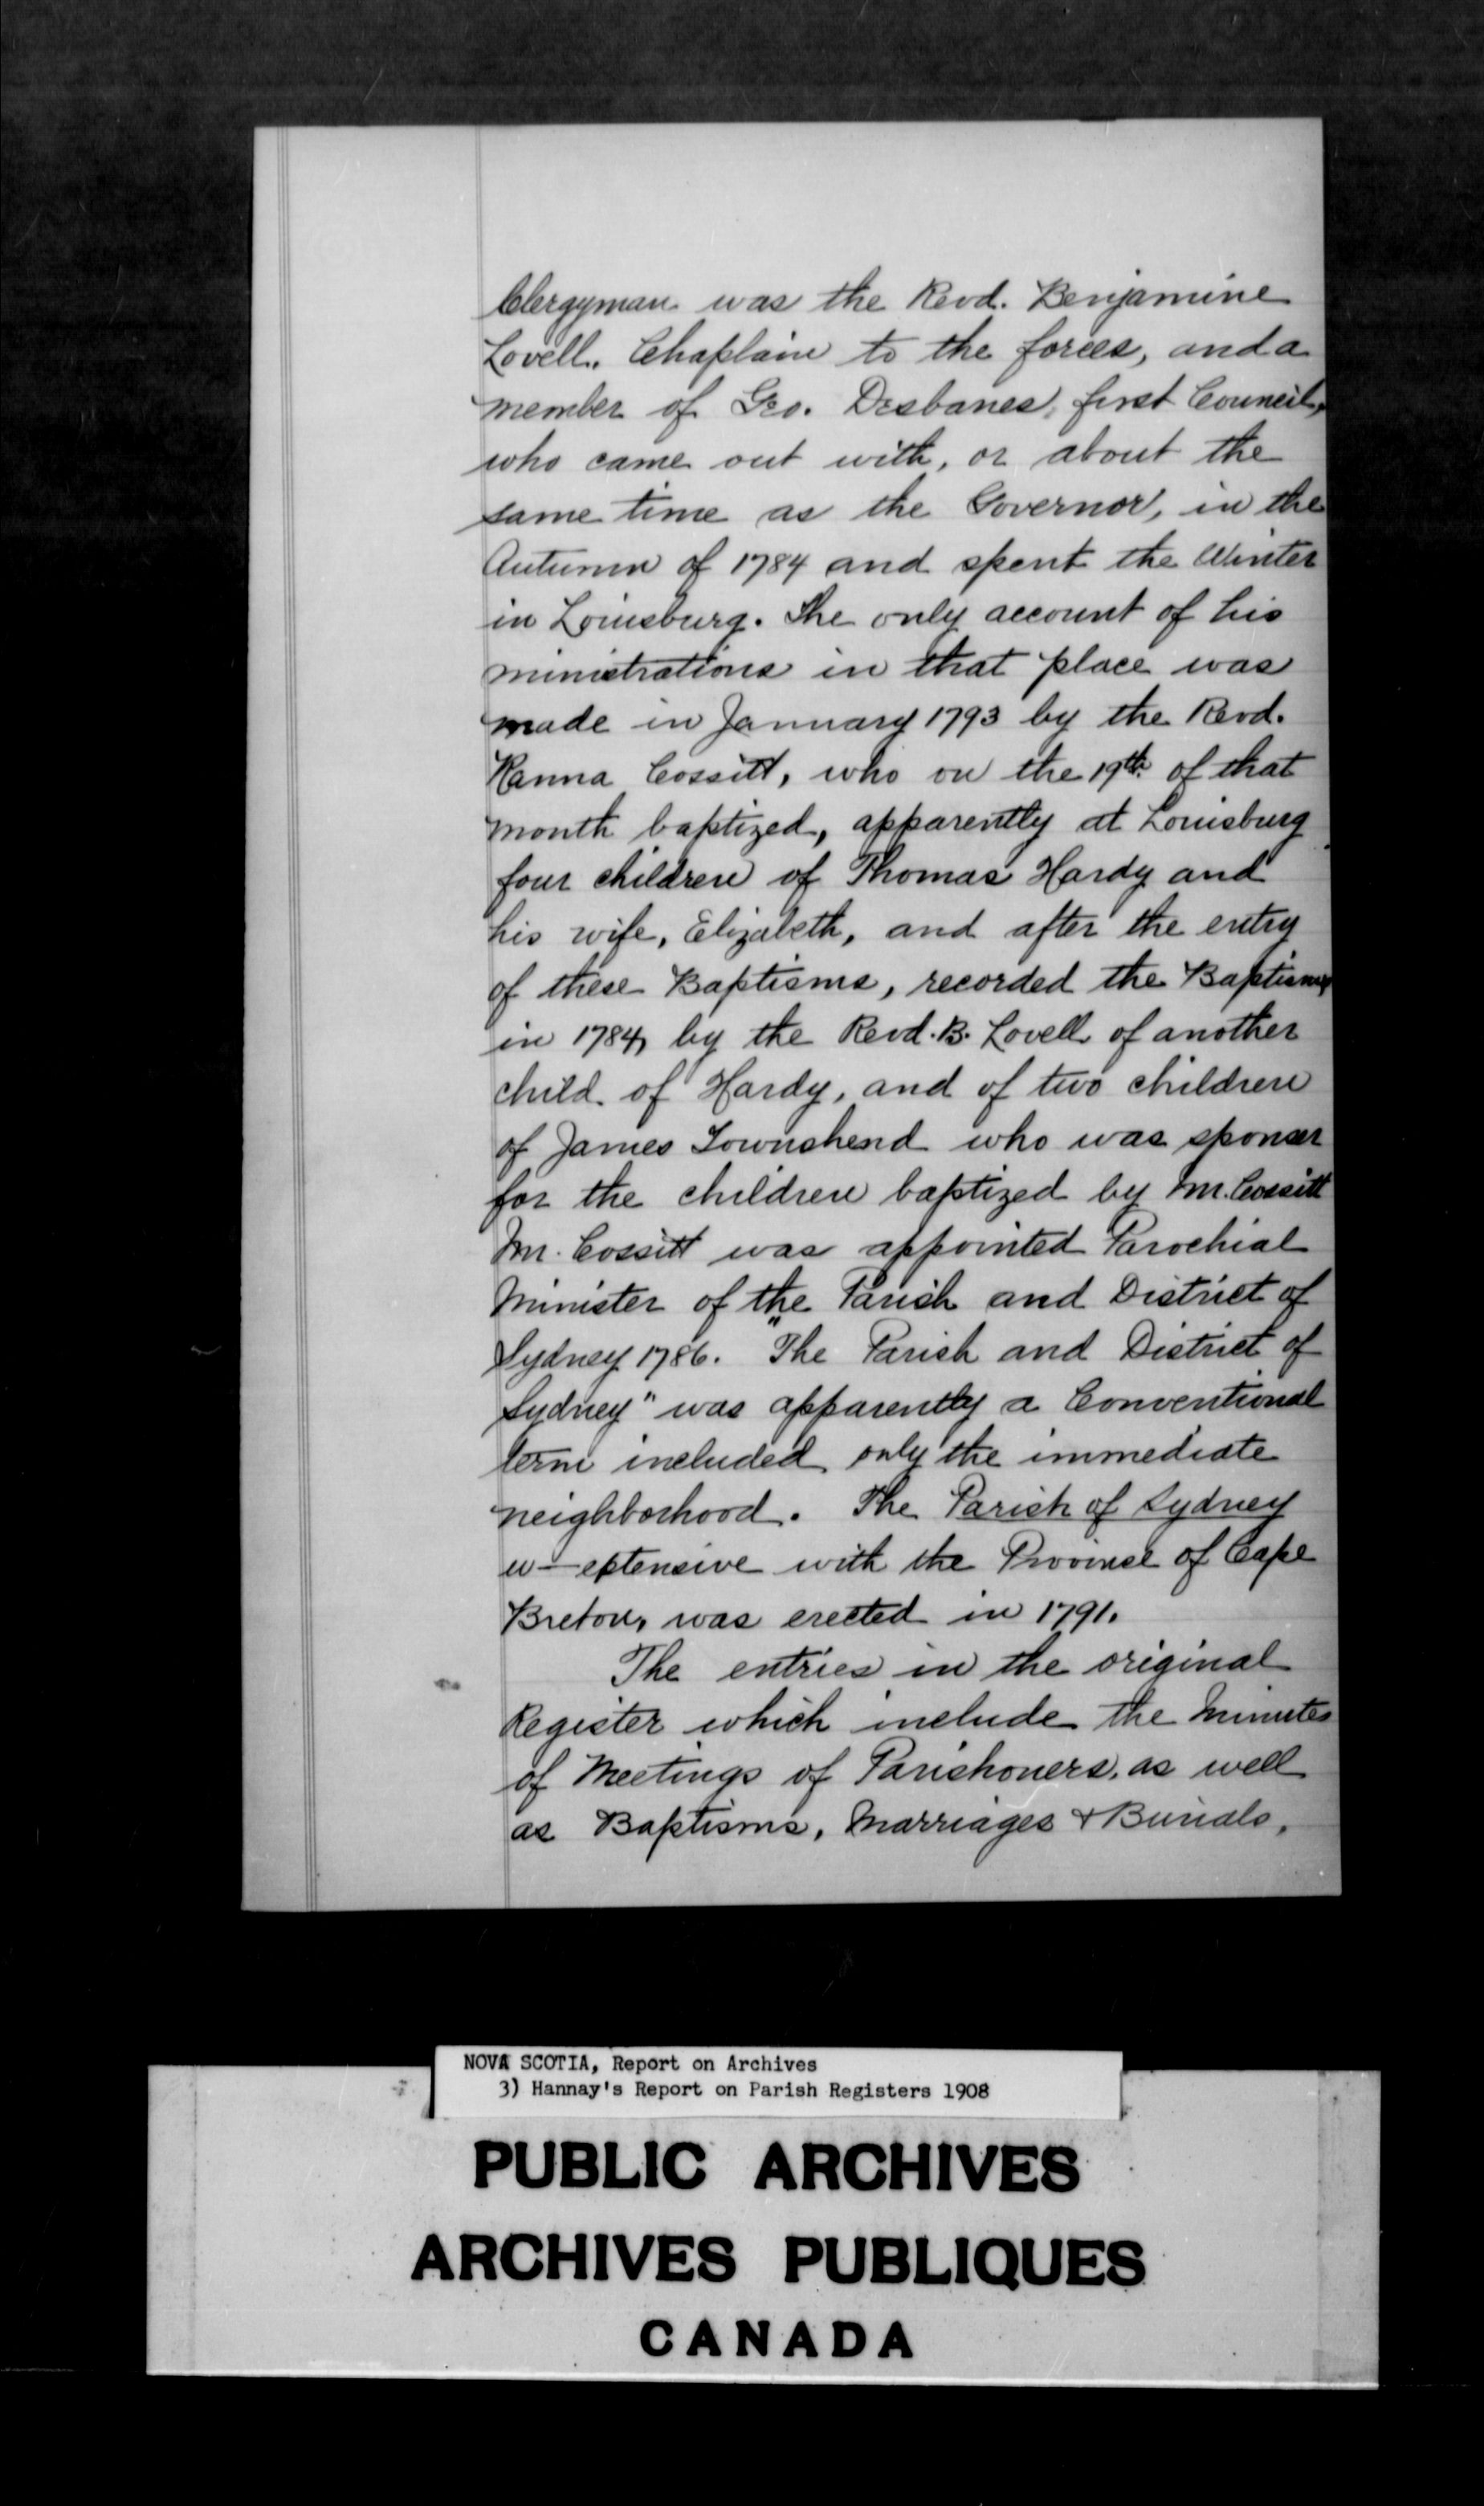 Clergyman was the Revd. Benjamine
Lovell. Chaplain to the forces, and a
member of Geo. Desbanes, first Council,
who came out with, or about the
same time as the Governor, in the
Autumn of 1784 and spent the Winter
in Louisburg. The only account of his
ministrations in that place was
made in January 1793 by the Revd.
Ranna Cossitt, who on the 19th. of that
month baptized, apparently at Louisburg
four children of Thomas Hardy and
his wife, Elizabeth, and after the entry
of these Baptisms, recorded the Baptisms,
in 1784, by the Revd. B. Lovell of another
child of Hardy, and of two children
of James Townshend who was sponser
for the children baptized by Mr. Cossitt
Mr. Cossitt was appointed Parochial
Minister of the Parish and District of
Sydney 1786. "The Parish and District of
Sydney" was apparently a Conventional
term included only the immediate
neighborhood. The Parish of Sydney
extensive with the Province of Cape
Breton, was erected in 1791.
The entries in the original
Register which include the Minutes
of Meetings of Parishoners, as well
as Baptisms, Marriages & Burials,
NOVA SCOTIA, Report on Archives
3) Hannay's Report on Parish Registers 1908
PUBLIC ARCHIVES
ARCHIVES PUBLIQUES
CANADA